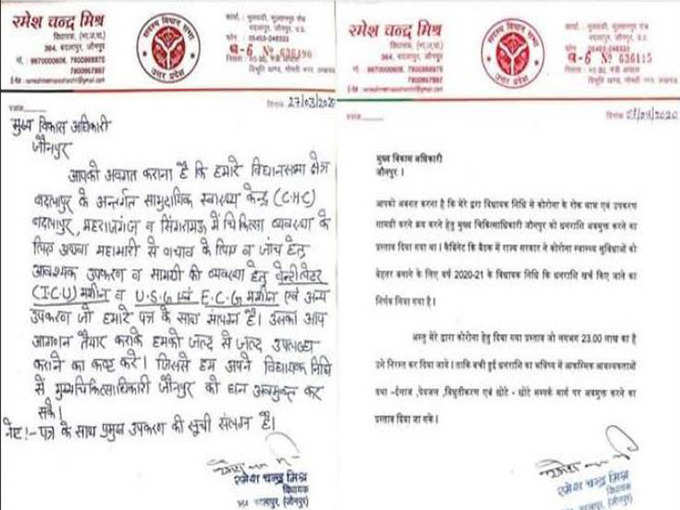 रमेश चन्द्र मिश्र
विधायक, (भा.ज.पा.)
364, बदलापुर, जौनपुर
7800867857
सदस्य विधान सभा
उत्तर प्रदेश
ब-6 No 636196
दिनांक 27/03/2020
मुख्य विकास अधिकारी
जौनपुर
आपको अवगत कराना है कि हमारे विधानसभा क्षेत्र
बदलापुर के अन्तर्गत सामुदायिक स्वास्थ्य केन्द्र (C.H.C)
बदलापुर, महराजगंज व सिंगरामऊ में चिकित्सा व्यवस्था के
लिए अथवा महामारी से बचाव के लिए व जांच हेतु
आवश्यक उपकरण व सामाग्री की व्यवस्था हेतु वेन्टीलेटर
(I.C.U) मशीन व U.S.G एवं E.C.G मशीन एवं अन्य
उपकरण जो हमारे पत्र के साथ संलग्न है। उसका आप
आगणन तैयार कराके हमको जल्द से जल्द उपलब्ध
कराने का कष्ट करे। जिससे हम अपने विधायक निधि
से मुख्यचिकित्साधिकारी जौनपुर को धन अवमुक्त कर
सके।
नोट!- पत्र के साथ प्रमुख उपकरण की सूची संलग्न है।
रमेश चन्द्र मिश्र
विधायक
364 बदलापुर, (जौनपुर)
रमेश चन्द्र मिश्र
विधायक, (भा.ज.पा.)
364, बदलापुर, जौनपुर
7800867857
सदस्य विधान सभा
उत्तर प्रदेश
ब-6 No 636115
दिनांक
मुख्य विकास अधिकारी
जौनपुर ।
आपको अवगत करना है कि मेरे द्वारा विधायक निधि में कोरोना के रोक थाम एवं उपकरण
सामग्री करने क्रय करने हेतु मुख्य चिकित्साधिकारी जौनपुर को धनराशि अवमुक्त करने का
प्रस्ताव दिया गया था। कैबिनेट कि बैठक में राज्य सरकार ने कोरोना स्वास्थ्य सुविधाओं को
बेहतर बनाने के लिए वर्ष 2020-21 के विधायक निधि कि धनराशि खर्च किए जाने का
निर्णय लिया गया है।
अस्तु मेरे द्वारा कोरोना हेतु दिया गया प्रस्ताव जो लगभग 23.00 लाख का है
उसे निरस्त कर दिया जावे। ताकि बची हुई धनराशि का भविष्य में आकस्मिक आवश्यकताओं
यथा -ईलाज, पेयजल, विधुतीकरण एवं छोटे - छोटे सम्पर्क मार्ग पर अवमुक्त करने का
प्रस्ताव दिया जा सके।
रमेश चन्द्र मिश्र
विधायक
364 बदलापुर, (जौनपुर)